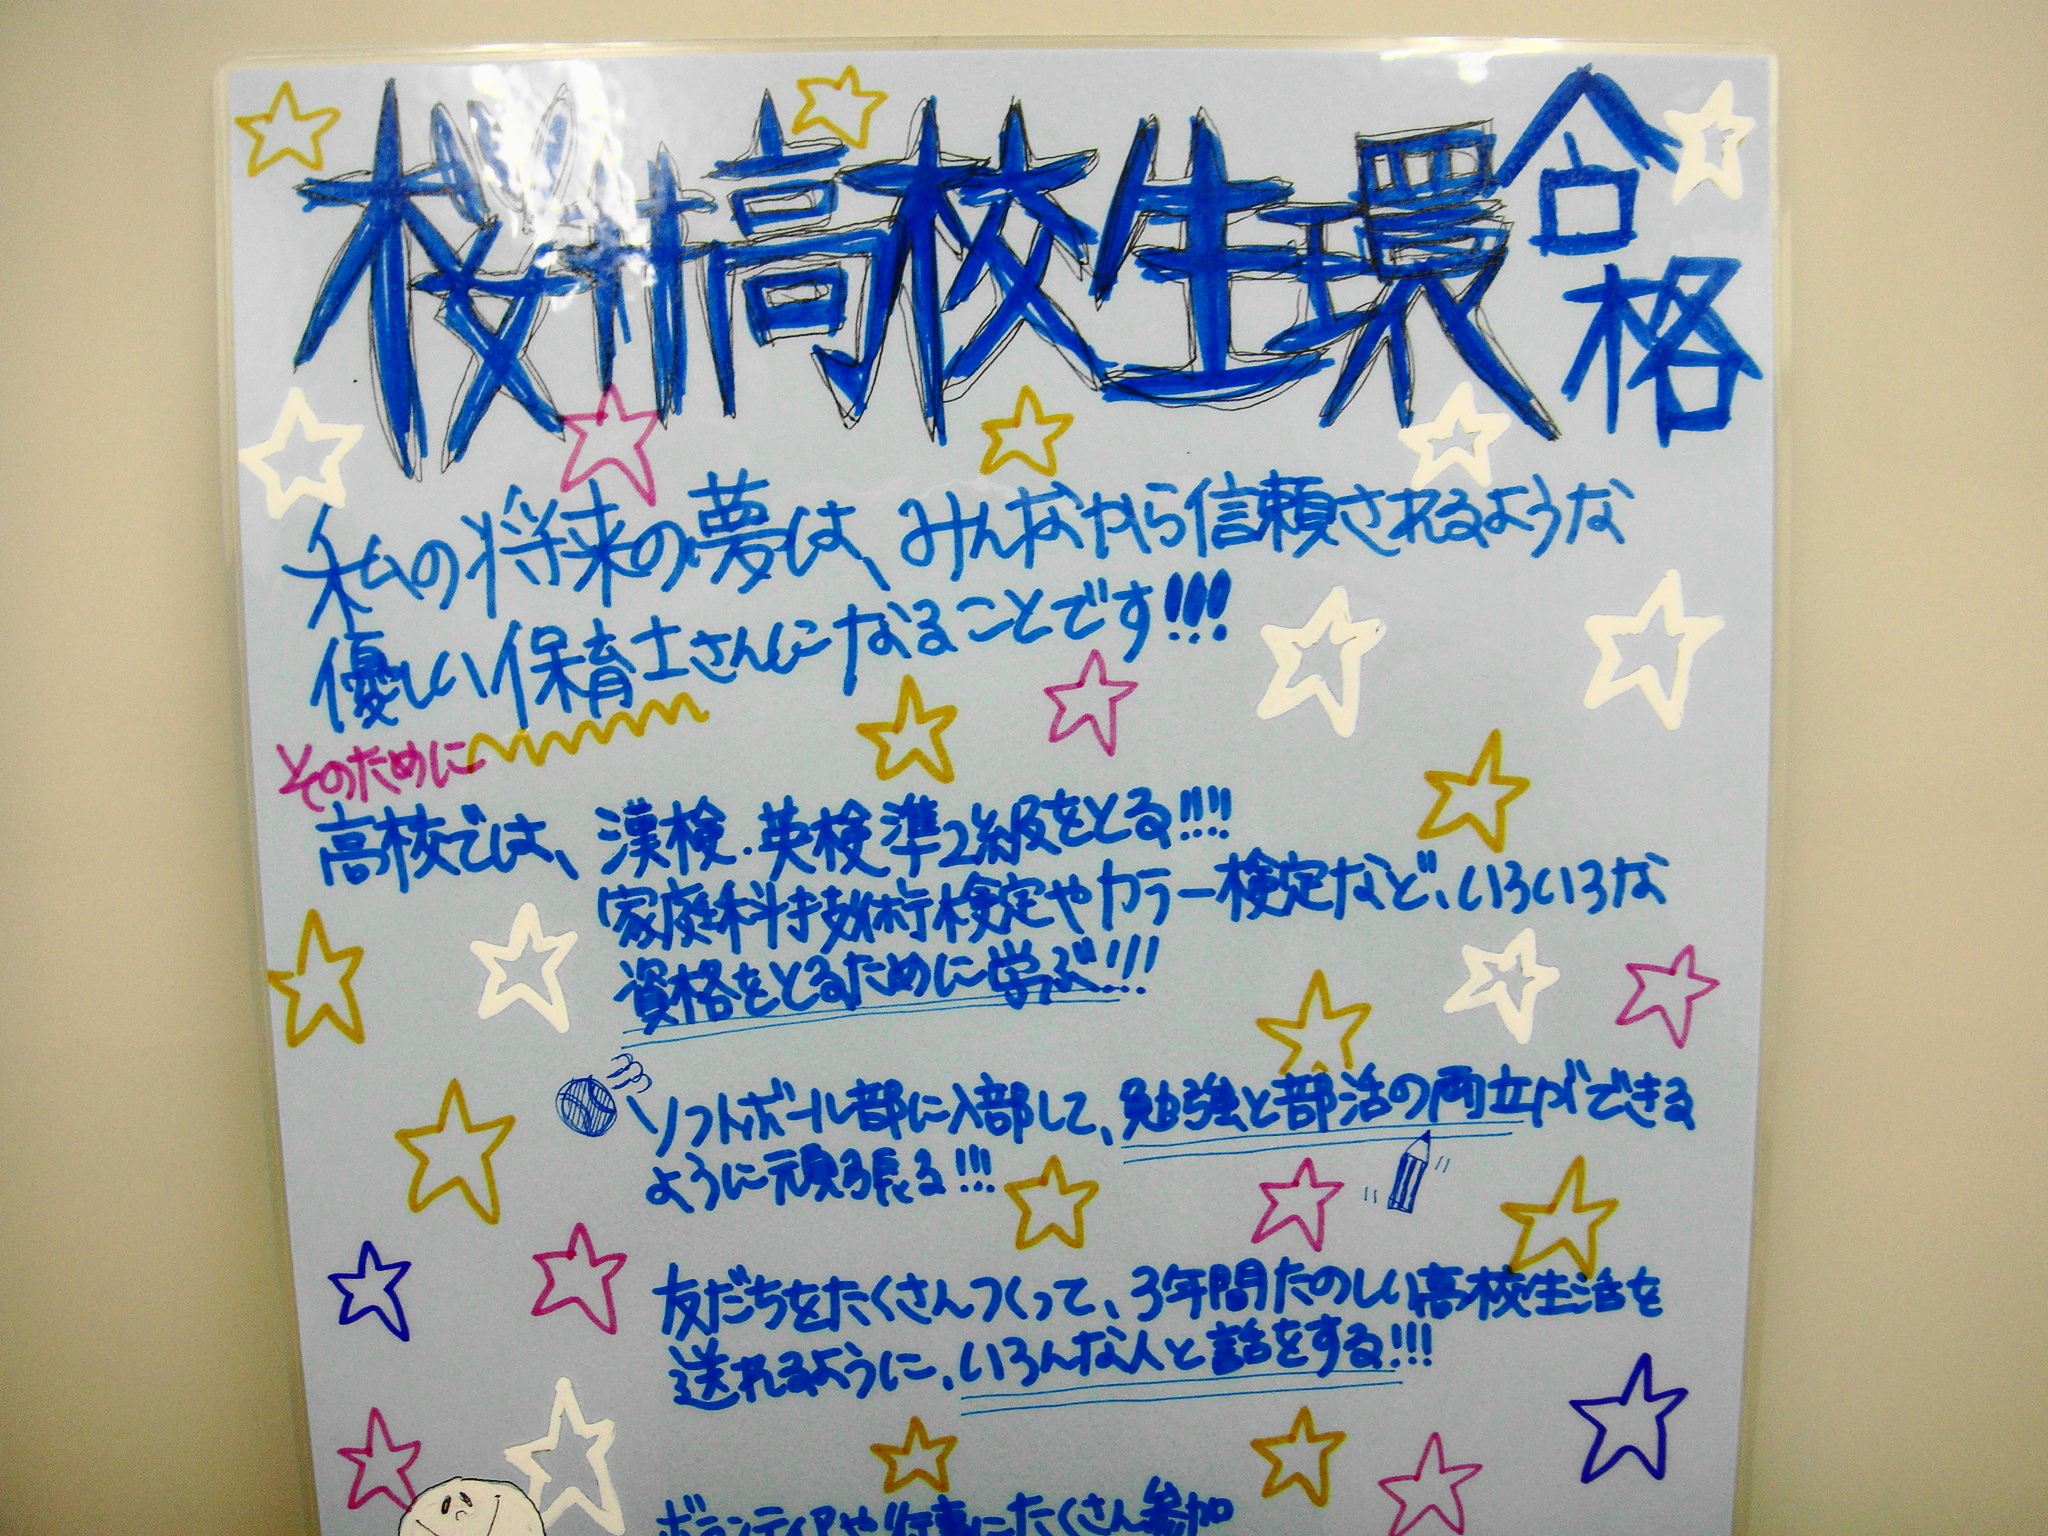 桜井高校生環合格
私の将来の夢は、みんなから信頼されるような
優しい保育士さんになることです!!!
そのために
高校では、漢検・英検準2級をとる!!!!
家庭科技術検定やカラー検定など、いろいろな
資格をとるために学ぶ!!!
ソフトボール部に入部して、勉強と部活の両立ができる
ように頑張る!!!
友だちをたくさんつくって、3年間たのしい高校生活を
送れるように、いろんな人と話をする!!!
ボランティアや行事にたくさん参加